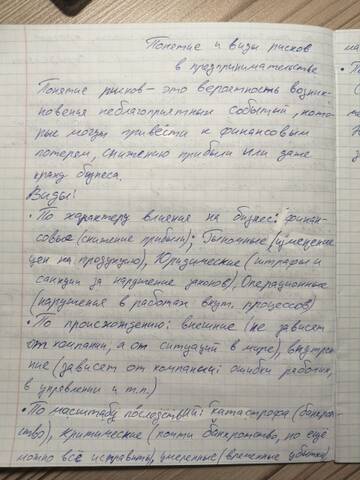 Понятие и виды рисков
в предпринимательстве
Понятие рисков - это вероятность возник-
новения неблагоприятных событий, кото-
рые могут привести к финансовым
потерям, снижению прибыли или даже
краху бизнеса.
Виды:
• По характеру влияния на бизнес: финан-
совые (снижение прибыли); Рыночные (изменение
цен на продукцию), Юридические (штрафы и
санкции за нарушение законов), Операционные
(нарушения в работах внут. процессов)
• По происхождению: внешние (не зависят
от компании, а от ситуаций в мире), внутрен-
ние (зависят от компании: ошибки рабочих,
в управлении и т.п.)
• По масштабу последствий: катастрофа (банкрот-
ство), критические (почти банкротство, но ещё
можно всё исправить), умеренные (временные убытки)